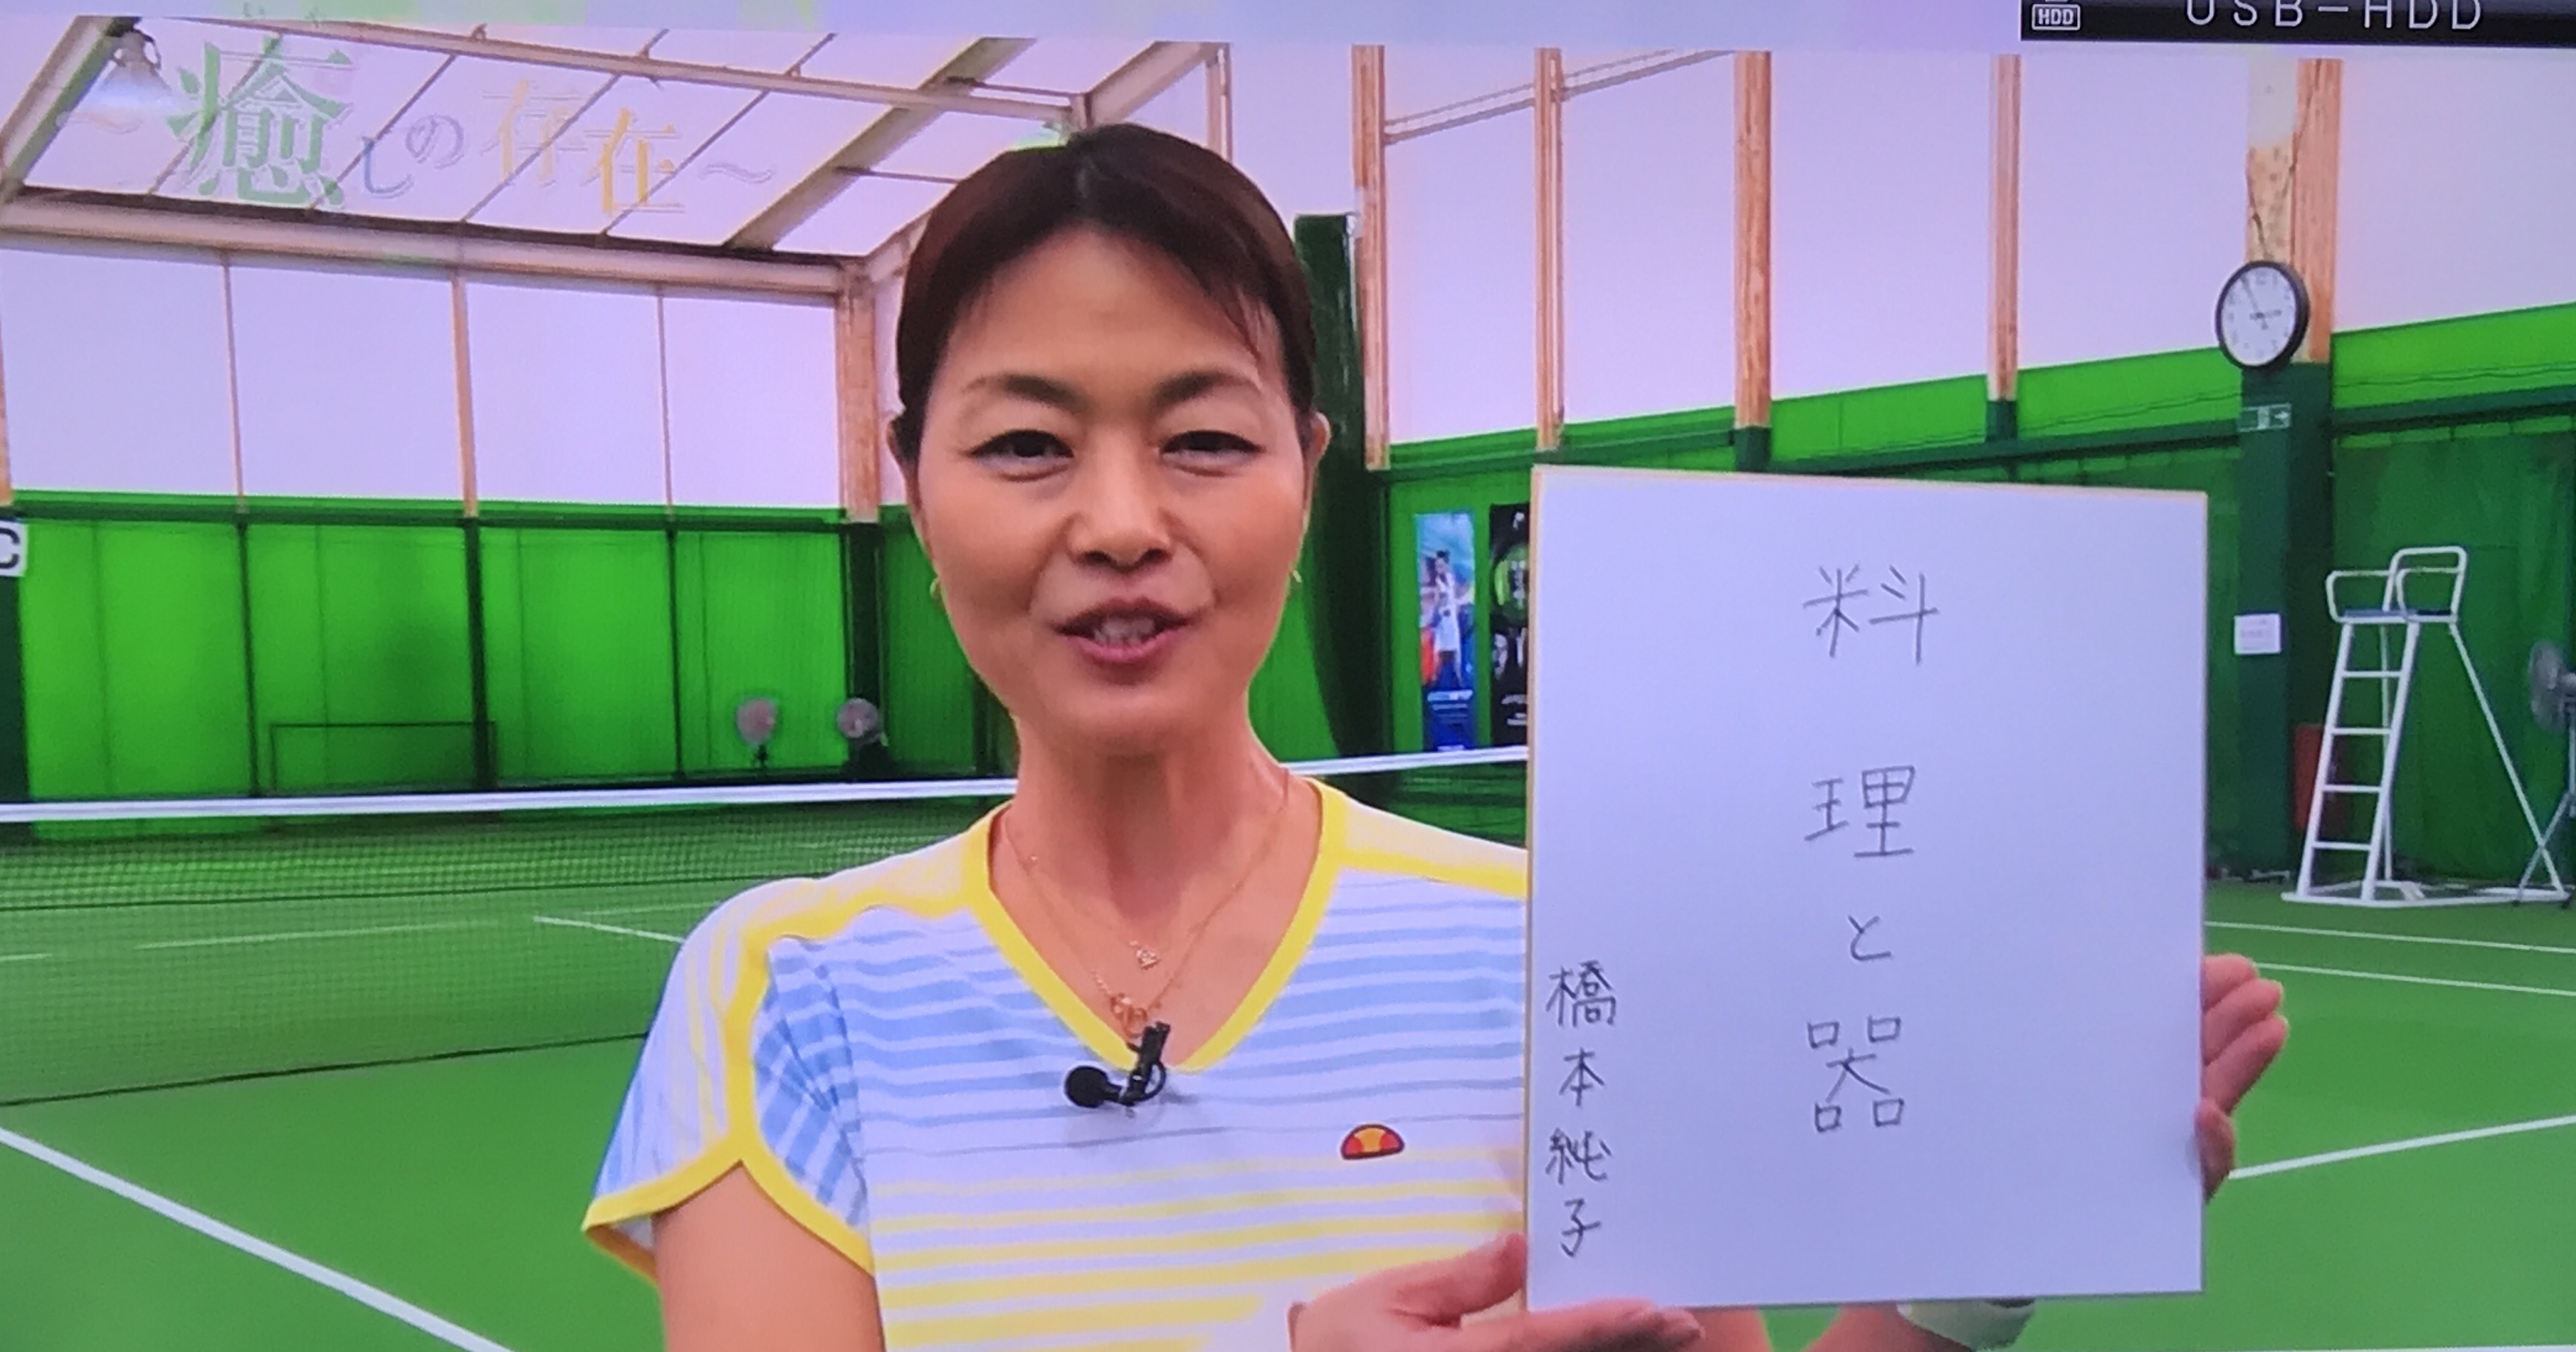 HDD USB-HDD
～癒しの存在～
C
料理と器
橋本純子